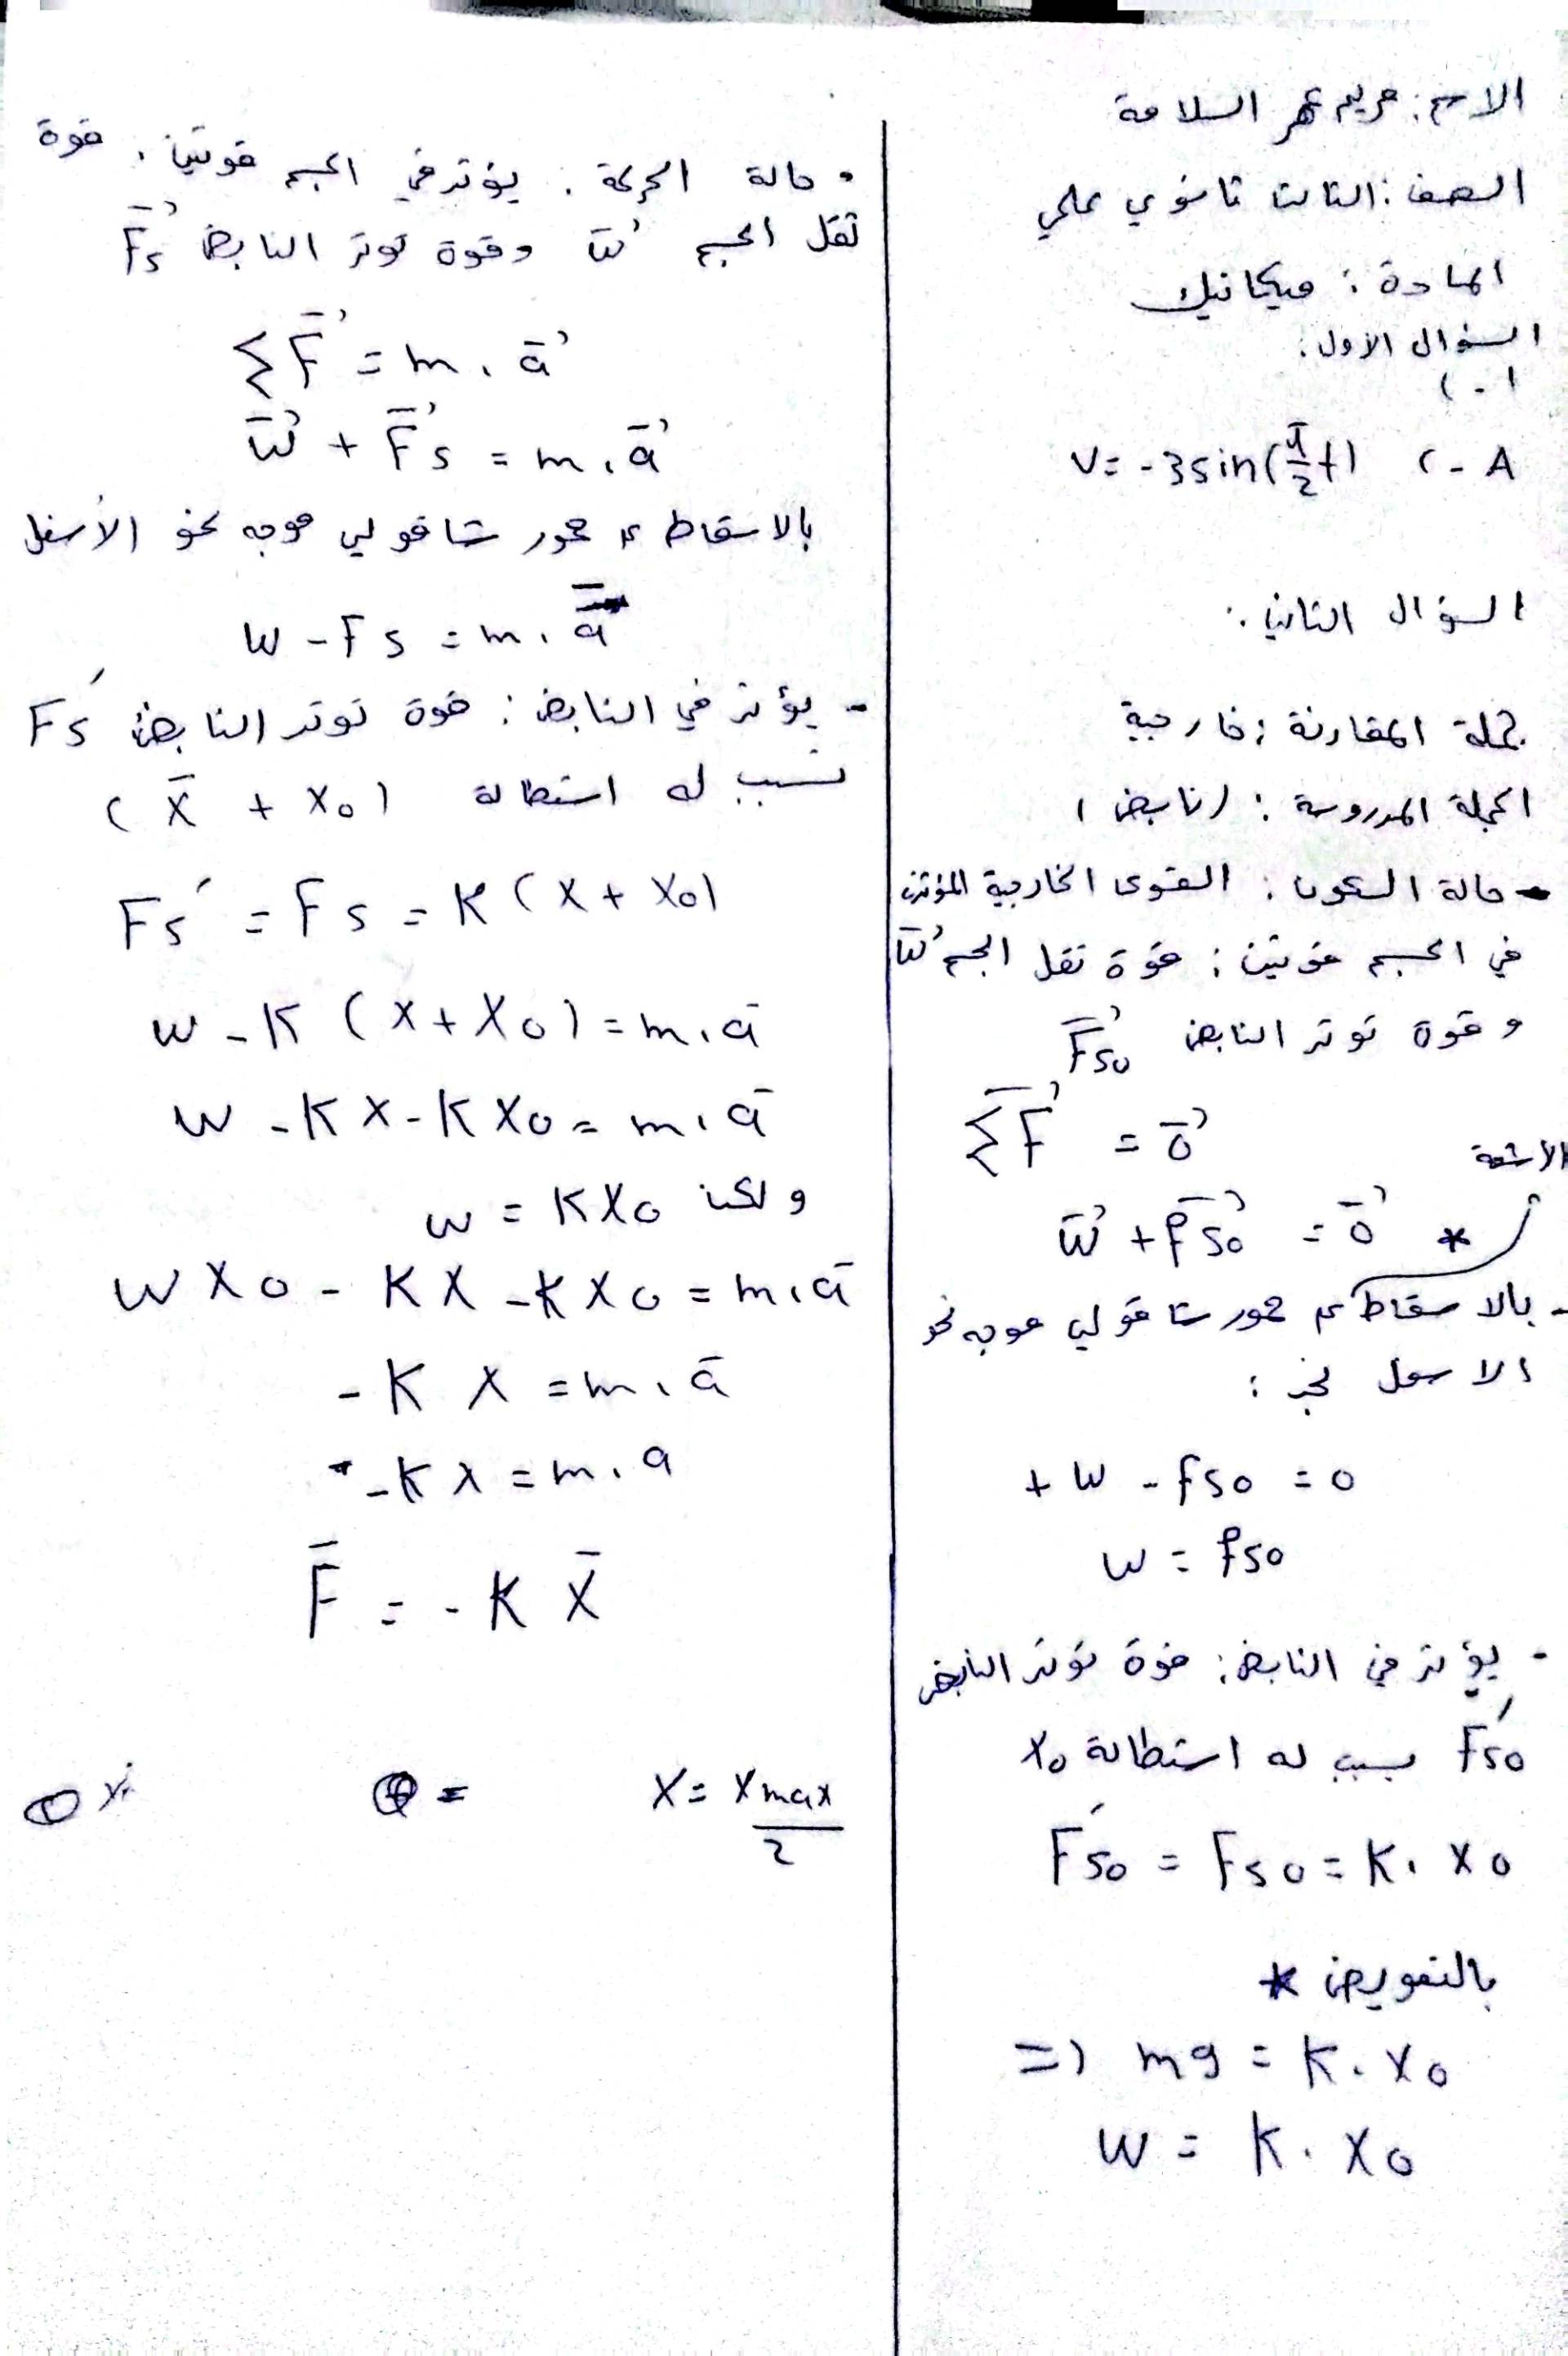 الاسم: مريم عمر السلامة
الصف: الثالث ثانوي علمي
المادة: ميكانيك
السؤال الأول:
1-)
A -) V= -3sin(π/2 t)
السؤال الثاني:
جملة المقارنة: خارجية
الجملة المدروسة: (نابض)
- حالة السكون: القوى الخارجية المؤثرة
في الجسم قوتين: قوة ثقل الجسم W̄'
و قوة توتر النابض F̄s0'
ΣF̄' = 0̄'
الأشعة
W̄' + F̄s0' = 0̄' *
- بالاسقاط على محور شاقولي موجه نحو
الاسفل نجد:
+W - Fs0 = 0
W = Fs0
- يؤثر في النابض: قوة توتر النابض
F's0 يسبب له استطالة X0
F's0 = Fs0 = K. X0
بالتعويض *
=) mg = K. X0
W = K. X0
• حالة الحركة: يؤثر في الجسم قوتين، قوة
ثقل الجسم W̄' وقوة توتر النابض F̄s'
ΣF̄' = m. ā'
W̄' + F̄s' = m. ā'
بالاسقاط على محور شاقولي موجه نحو الأسفل
W - Fs = m. ā
- يؤثر في النابض: قوة توتر النابض Fs'
تسبب له استطالة (X̄ + X0)
Fs' = Fs = K (X + X0)
W - K (X + X0) = m. ā
W - KX - KX0 = m. ā
ولكن W = KX0
WX0 - KX - KX0 = m. ā
- K X = m. ā
- K X = m. a
F̄ = - K X̄
X = Xmax/2